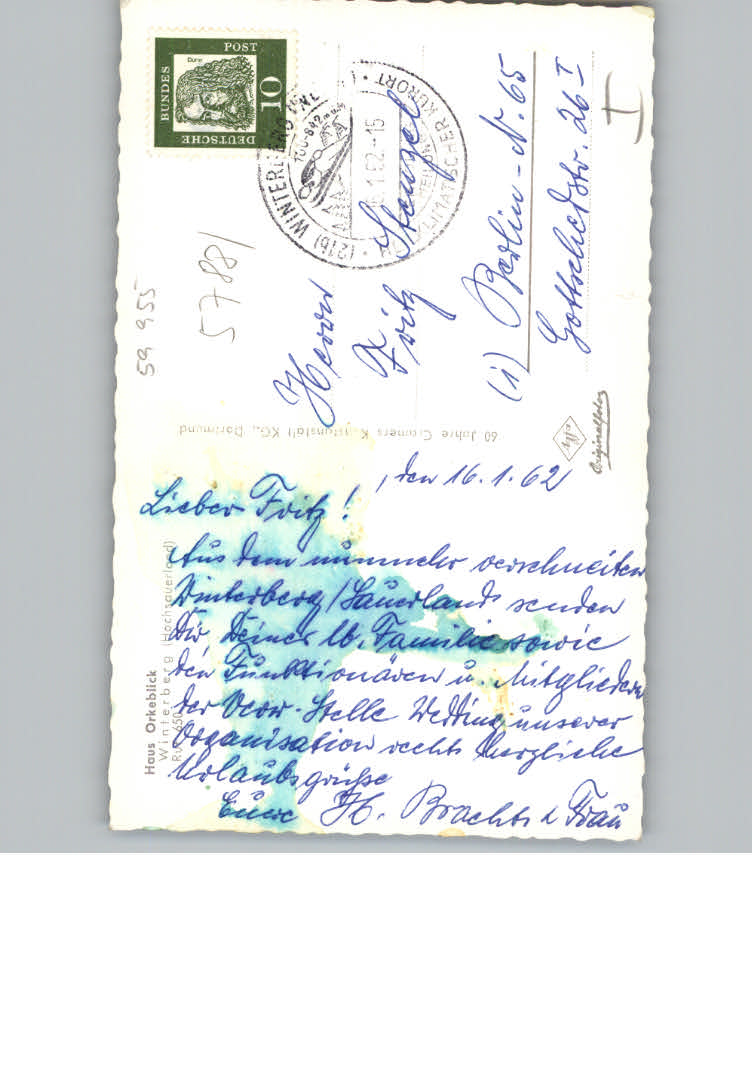 Dürer
DEUTSCHE BUNDES POST
10
(21b) WINTERBERG
700-842 m ü.M.
1.62.-15
HEILKLIMATISCHER KURORT
59 955
5788/
I
Herrn
Fritz Stenzel
(1) Berlin-N. 65
Gottschedstr. 26 I
60 Jahre Cramers Kunstanstalt KG., Dortmund
Originalfoto
Haus Orkeblick
Winterberg (Hochsauerland)
Ruf 650
, den 16.1.62
Lieber Fritz!
Aus dem nunmehr verschneiten
Winterberg/Sauerland senden
Dir, Deiner lb. Familie sowie
den Funktionären u. Mitgliedern
der Verw.-Stelle Wedding unserer
Organisation recht herzliche
Urlaubsgrüße
Eure H. Brachts & Frau